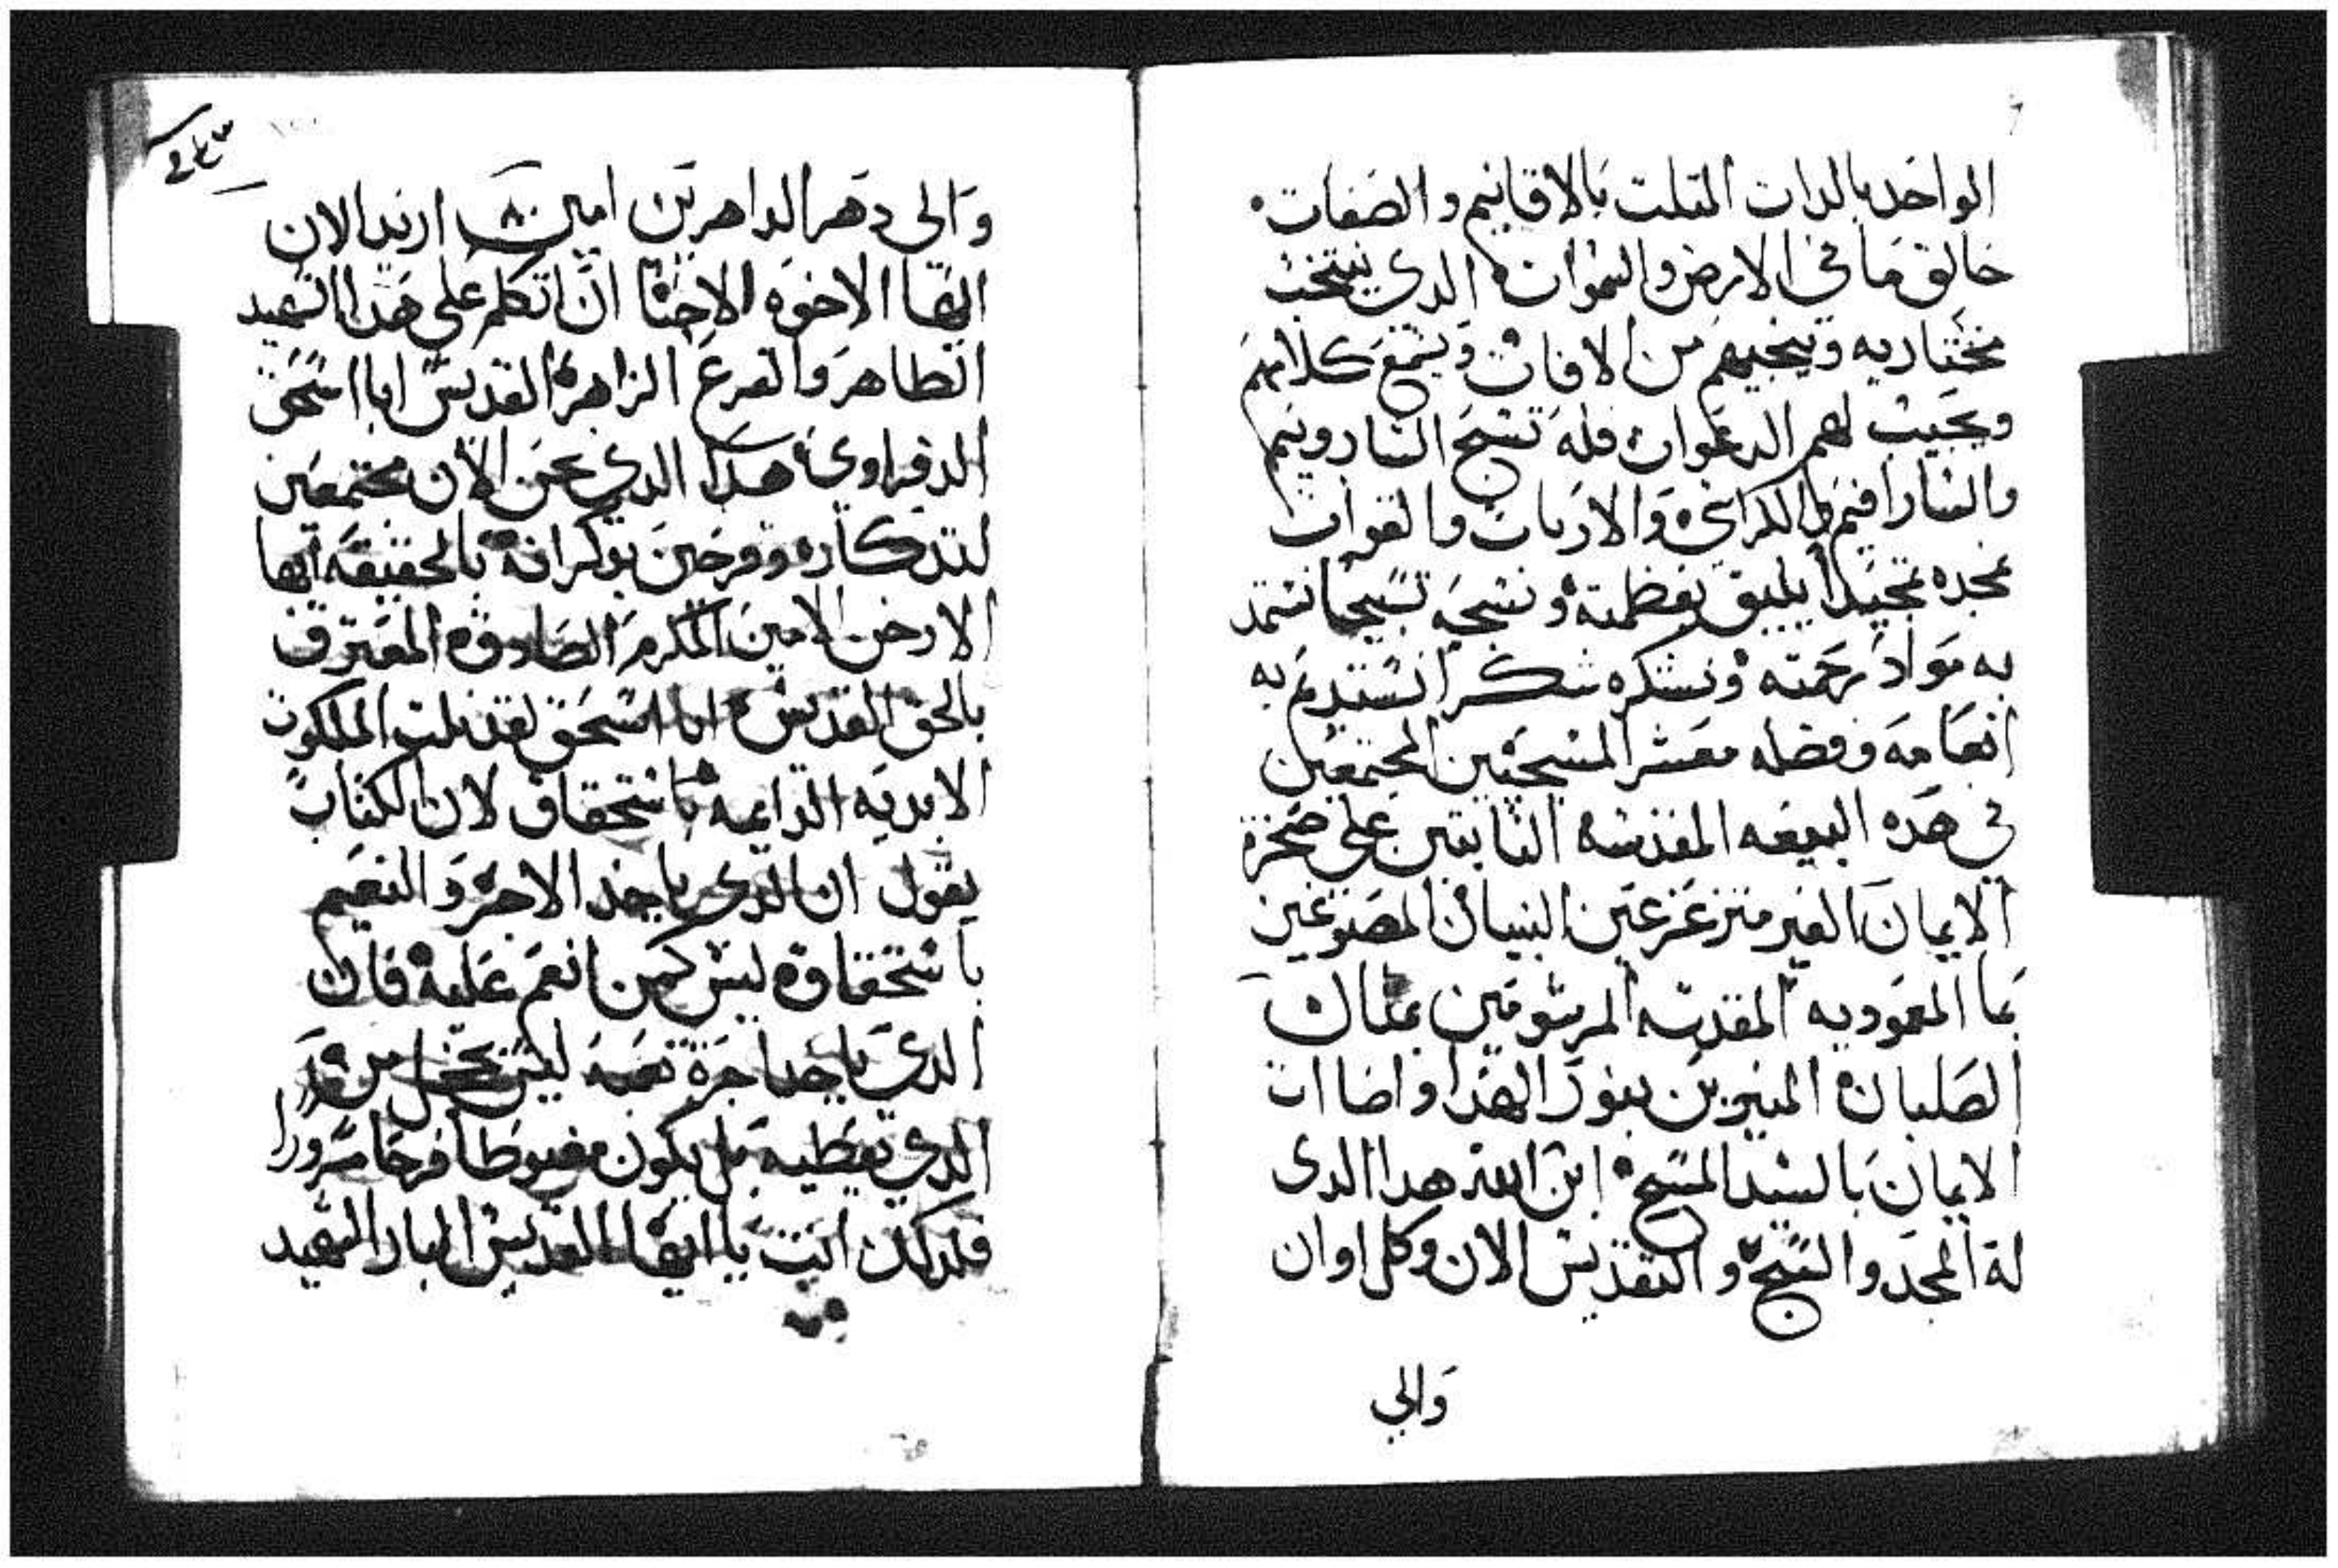 الواحد بالدات المتلت بالاقانيم والصفات
خالق ما في الارض والسموات الدي ينتخب
مختاريه وينجيهم من الافات ويسمع كلامهم
ويجيب لهم الدعوات فله تسبح الشاروبيم
والسارافيم والكراسي والاربات والقوات
نمجده تمجيدا يليق بعظمته ونسبحه تسبيحا نستمد
به مواد رحمته ونشكره شكرا نستديم به
انعامه وفضله معشر المسيحيين المجتمعين
في هده البيعه المقدسه التابتين على صخرة
الايمان الغير متزعزعين البنيان المصبوغين
بما المعموديه المقدسه المرشومين بمتال
الصلبان المنيرين بنور الهدا واضاات
الايمان بالسيد المسيح ابن الله هدا الدى
له المجد والتسبيح والتقديس الان وكل اوان
والي
والى دهر الداهرين امين اريد الان
ايها الاخوه الاحبا ان اتكلم على هدا الشهيد
الطاهر والفرع الزاهر القديس ابا اسحق
الدفراوي هدا الدي نحن الان مجتمعين
لتدكاره وفرحين بوكرانه بالحقيقه ايها
الارخن الامين المكرم الصادق المعترف
بالحق القديس ابا اسحق لقد نلت الملكوت
الابديه الدايمه باستحقاق لان الكتاب
يقول ان الدى ياخد الاجر والنعيم
باستحقاقه ليس كمن انعم عليه فان
الدى ياخد اجرة تعبه ليس يخجل من
الدي يعطيه بل يكون مغبوطا فرحا مسرورا
فلدلك انت يا ايها القديس البار الشهيد